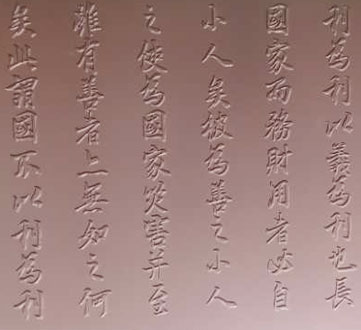 利為利以義為利也長
國家而務財用者必自
小人矣彼為善之小人
之使為國家災害并至
雖有善者亦無如之何
矣此謂國不以利為利